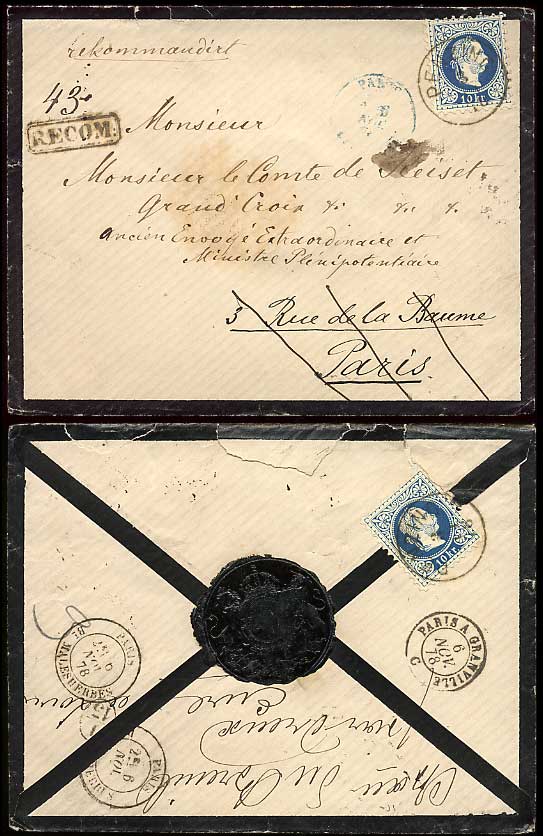 rekommandirt
43
RECOM.
10 kr
PARIS
Monsieur
Monsieur le Comte de Reiset
Grand Croix % % %
ancien Envoyé Extraordinaire et
Ministre Plénipotentiaire
3 Rue de la Baume
Paris.
10 kr
PARIS A GRANVILLE
6
NOV.
78
C
PARIS
6
NOV
78
Bt MALESHERBES
PARIS
2E 6
NOV
Chau du Breuil
par Dreux
Eure